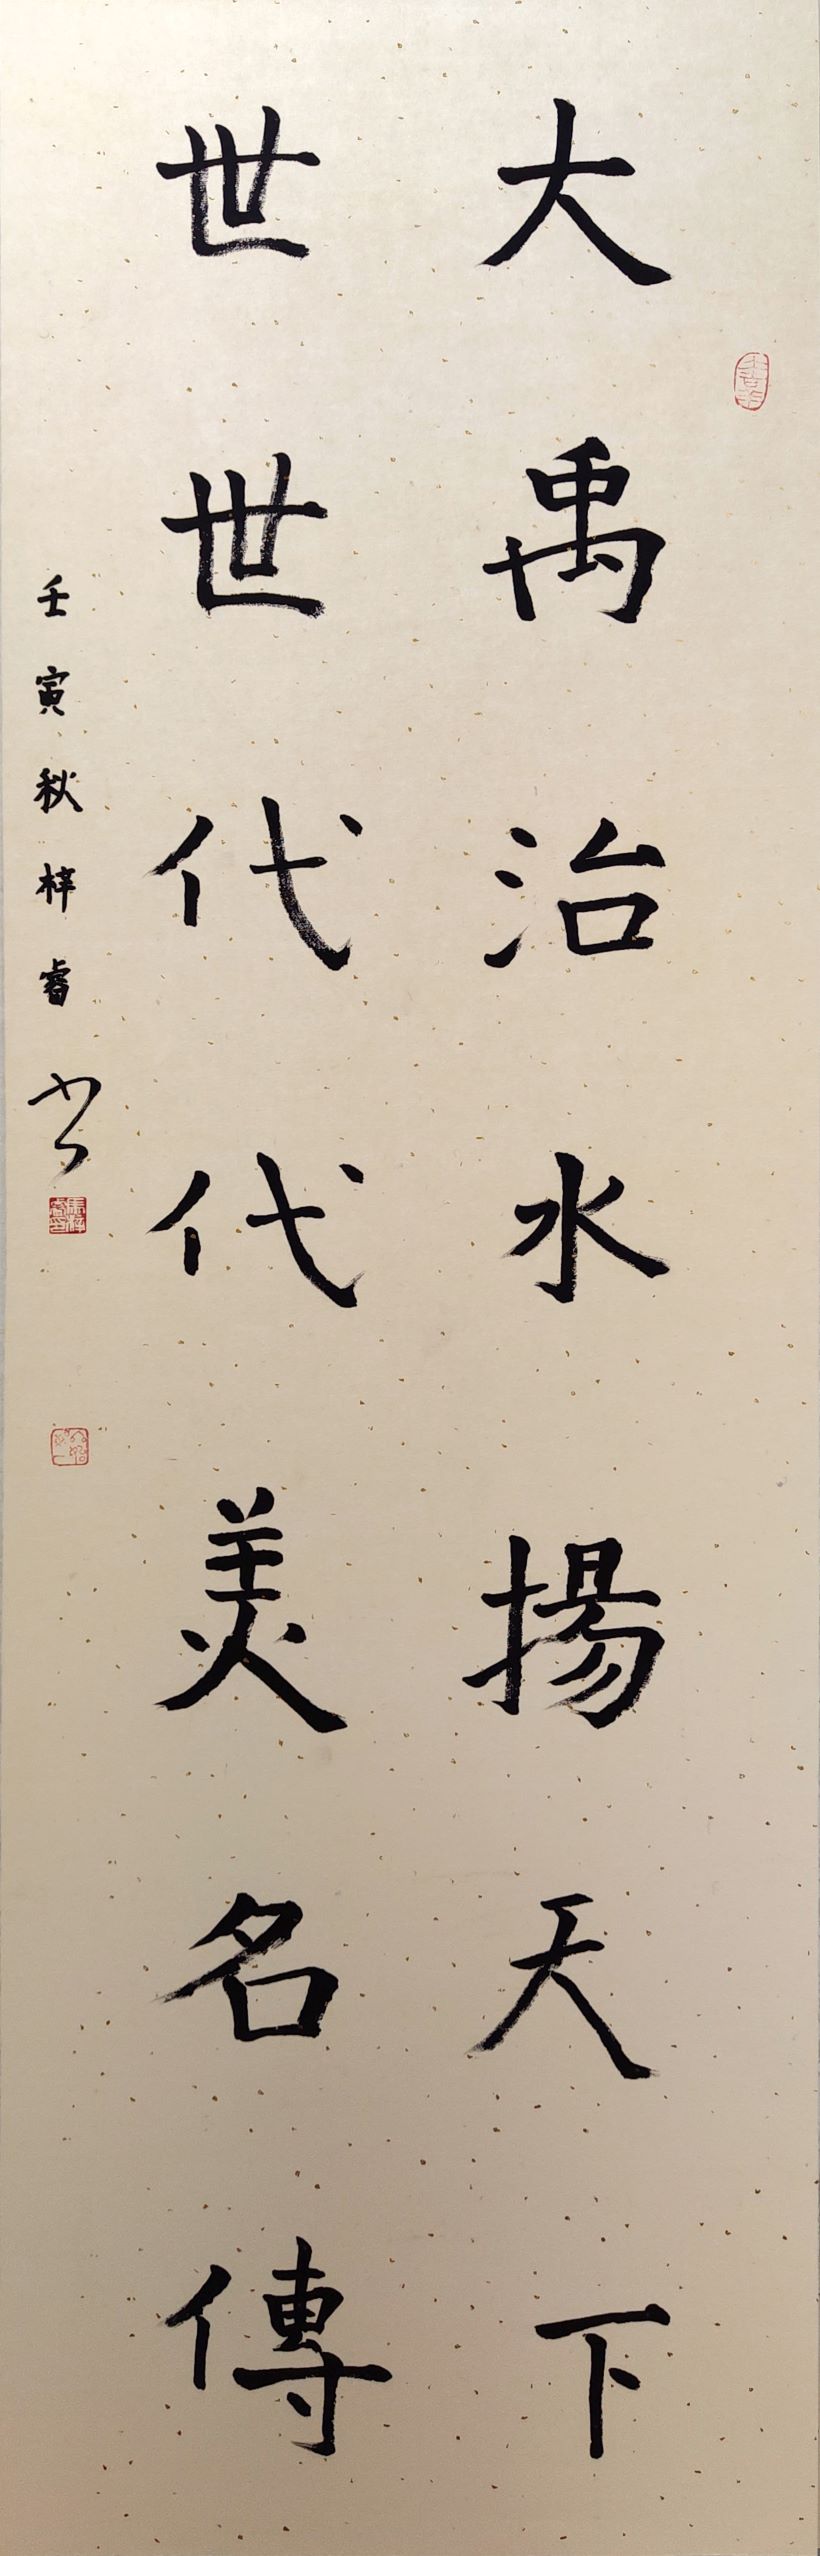 大禹治水揚天下
世世代代美名傳
壬寅秋梓睿书